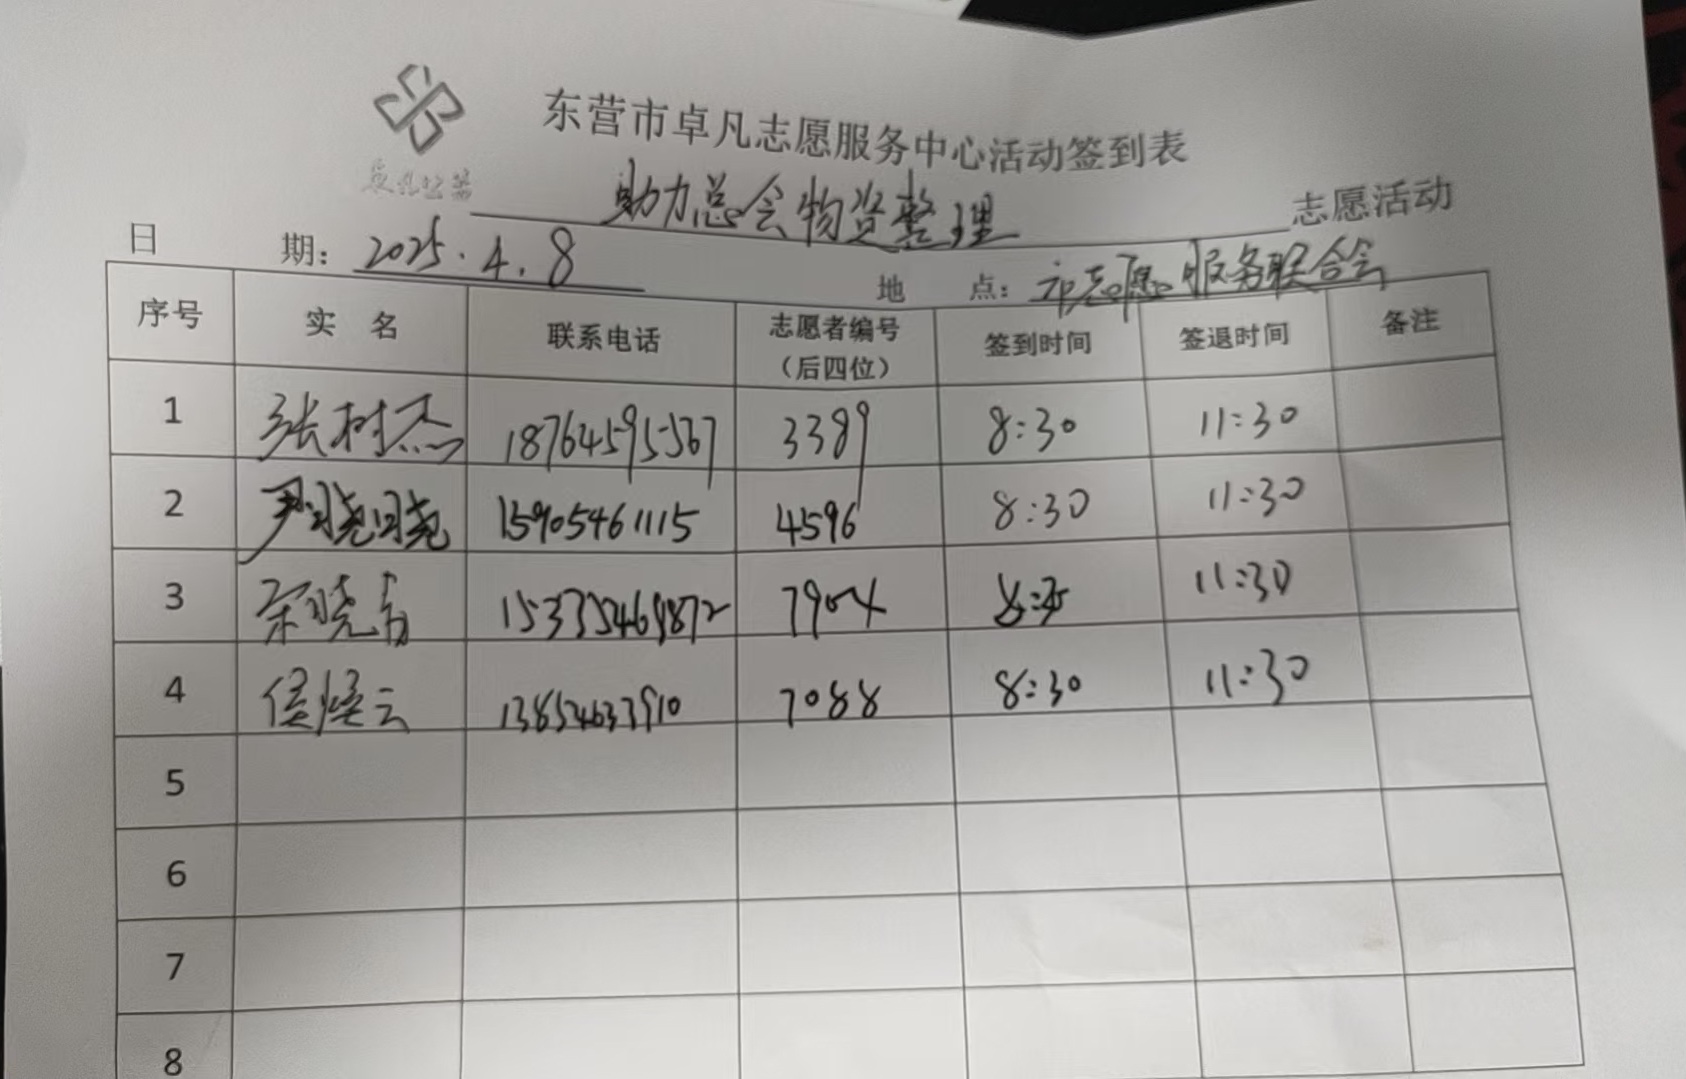 东营市卓凡志愿服务中心活动签到表
助力总会物资整理 志愿活动
日 期： 2025.4.8 地 点： 市志愿服务联合会
序号 实 名 联系电话 志愿者编号（后四位） 签到时间 签退时间 备注
1 张树杰 18764595567 3389 8:30 11:30
2 尹晓晓 15905461115 4596 8:30 11:30
3 7904 11:30
4 7088 8:30 11:30
5
6
7
8